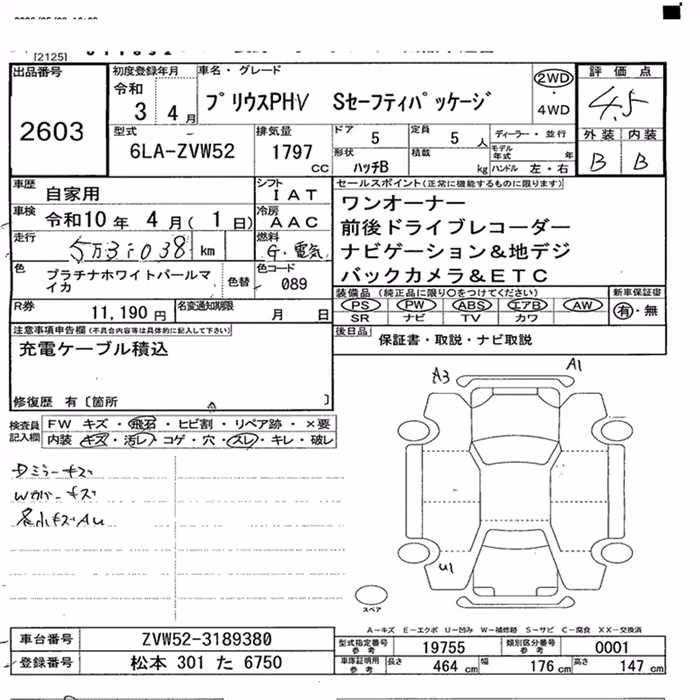 [2125]
出品番号
2603
初度登録年月
令和
3 4月
車名・グレード
プリウスPHV Sセーフティパッケージ
2WD
・
4WD
評価点
4.5
外装 内装
B B
型式
6LA-ZVW52
排気量
1797 CC
ドア
5
定員
5 人
形状
ハッチB
積載
kg
ディーラー・並行
モデル年式 年
ハンドル 左・右
車歴
自家用
シフト
IAT
車検
令和10年 4月(1日)
冷房
AAC
走行
km
燃料
G・電気
色
プラチナホワイトパールマイカ
色替
色コード
089
R券
11,190円
名変通知期限
月 日
セールスポイント(正常に機能するものに限ります)
ワンオーナー
前後ドライブレコーダー
ナビゲーション&地デジ
バックカメラ&ETC
装備品 (純正品に限り○をつけてください)
PS PW ABS エアB AW
SR ナビ TV カワ
新車保証書
有・無
後日品
保証書・取説・ナビ取説
注意事項申告欄(不具合内容等は具体的に記入して下さい)
充電ケーブル積込
修復歴 有〔箇所 〕
検査員記入欄
FW キズ・飛石・ヒビ割・リペア跡・×要
内装 キズ・汚レ・コゲ・穴・スレ・キレ・破レ
ドミラーキズ
Wカバーキズ
各小キズAU
A3
A1
U1
スペア
A-キズ E-エクボ U-凹み W-補修跡 S-サビ C-腐食 XX-交換済
車台番号
ZVW52-3189380
登録番号
松本 301 た 6750
型式指定番号参考
19755
類別区分番号参考
0001
車庫証明用参考
長さ 464 cm 幅 176 cm 高さ 147 cm